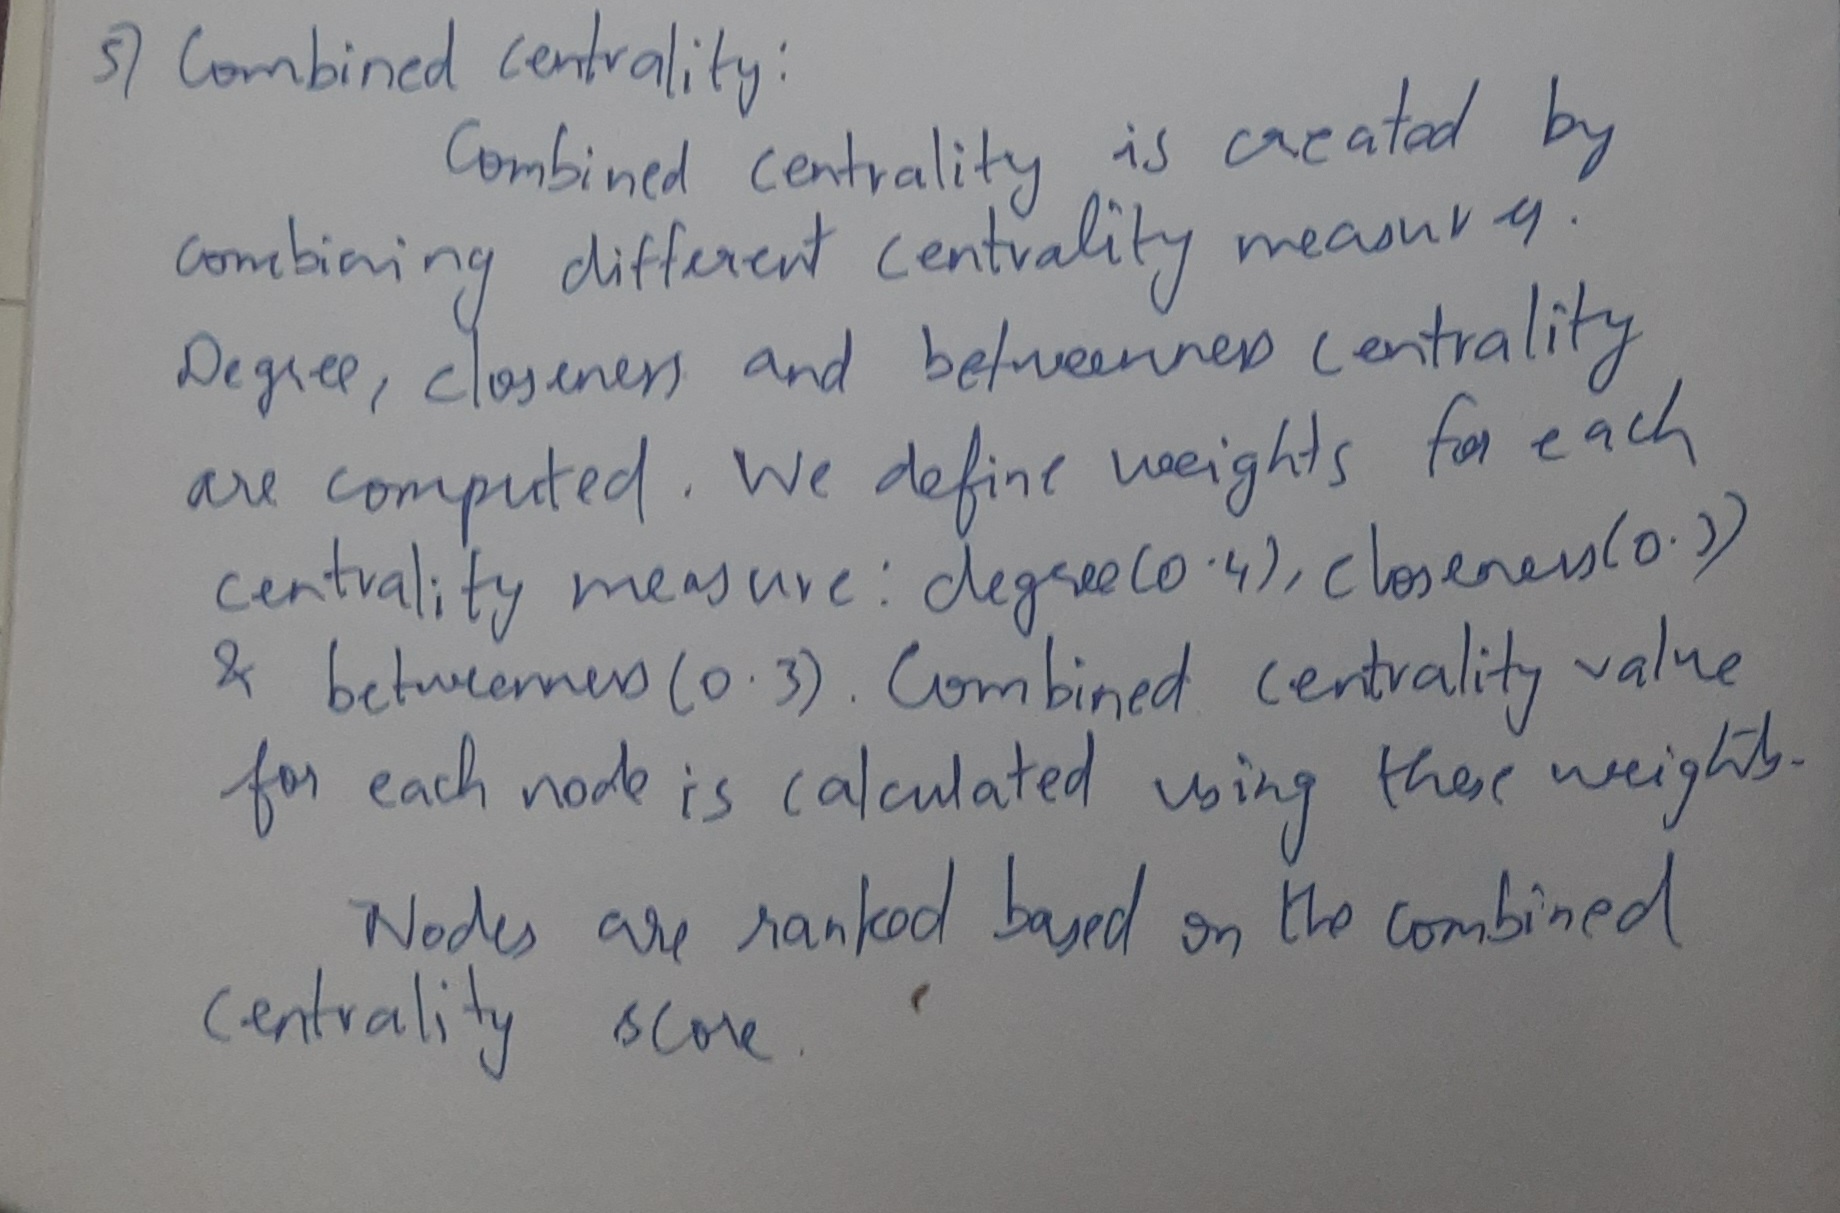 5) Combined centrality:
Combined centrality is created by
combining different centrality measures.
Degree, closeness and betweenness centrality
are computed. We define weights for each
centrality measure: degree(0.4), closeness(0.3)
& betweenness(0.3). Combined centrality value
for each node is calculated using these weights.
Nodes are ranked based on the combined
centrality score.